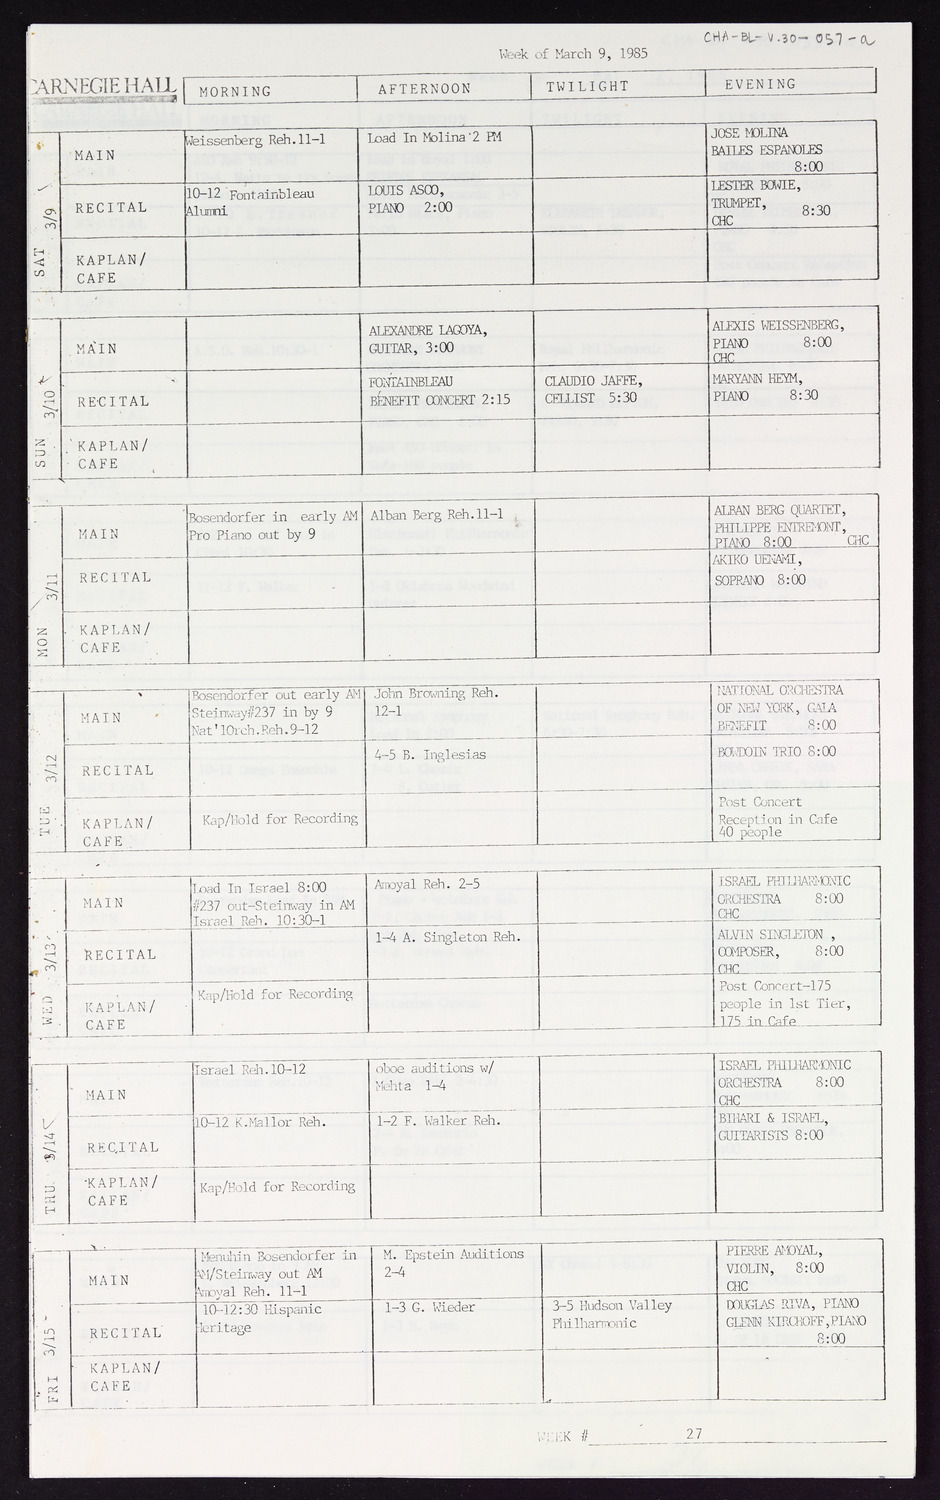 CHA-BL-V.30-057-a
Week of March 9, 1985
CARNEGIE HALL
MORNING AFTERNOON TWILIGHT EVENING
SAT 3/9
MAIN
Weissenberg Reh.11-1
Load In Molina 2 PM
JOSE MOLINA
BAILES ESPANOLES
8:00
RECITAL
10-12 Fontainbleau
Alumni
LOUIS ASCO,
PIANO 2:00
LESTER BOWIE,
TRUMPET, 8:30
CHC
KAPLAN/
CAFE
SUN 3/10
MAIN
ALEXANDRE LAGOYA,
GUITAR, 3:00
ALEXIS WEISSENBERG,
PIANO 8:00
CHC
RECITAL
FONTAINBLEAU
BENEFIT CONCERT 2:15
CLAUDIO JAFFE,
CELLIST 5:30
MARYANN HEYM,
PIANO 8:30
KAPLAN/
CAFE
MON 3/11
MAIN
Bosendorfer in early AM
Pro Piano out by 9
Alban Berg Reh.11-1
ALBAN BERG QUARTET,
PHILIPPE ENTREMONT,
PIANO 8:00 CHC
RECITAL
AKIKO UENAMI,
SOPRANO 8:00
KAPLAN/
CAFE
TUE 3/12
MAIN
Bosendorfer out early AM
Steinway#237 in by 9
Nat'lOrch.Reh.9-12
John Browning Reh.
12-1
NATIONAL ORCHESTRA
OF NEW YORK, GALA
BENEFIT 8:00
RECITAL
4-5 B. Inglesias
BOWDOIN TRIO 8:00
KAPLAN/
CAFE
Kap/Hold for Recording
Post Concert
Reception in Cafe
40 people
WED 3/13
MAIN
Load In Israel 8:00
#237 out-Steinway in AM
Israel Reh. 10:30-1
Amoyal Reh. 2-5
ISRAEL PHILHARMONIC
ORCHESTRA 8:00
CHC
RECITAL
1-4 A. Singleton Reh.
ALVIN SINGLETON ,
COMPOSER, 8:00
CHC
KAPLAN/
CAFE
Kap/Hold for Recording
Post Concert-175
people in 1st Tier,
175 in Cafe
THU 3/14
MAIN
Israel Reh.10-12
oboe auditions w/
Mehta 1-4
ISRAEL PHILHARMONIC
ORCHESTRA 8:00
CHC
RECITAL
10-12 K.Mallor Reh.
1-2 F. Walker Reh.
BIHARI & ISRAEL,
GUITARISTS 8:00
KAPLAN/
CAFE
Kap/Hold for Recording
FRI 3/15
MAIN
Menuhin Bosendorfer in
AM/Steinway out AM
Amoyal Reh. 11-1
M. Epstein Auditions
2-4
PIERRE AMOYAL,
VIOLIN, 8:00
CHC
RECITAL
10-12:30 Hispanic
Heritage
1-3 G. Wieder
3-5 Hudson Valley
Philharmonic
DOUGLAS RIVA, PIANO
GLENN KIRCHOFF,PIANO
8:00
KAPLAN/
CAFE
WEEK # 27